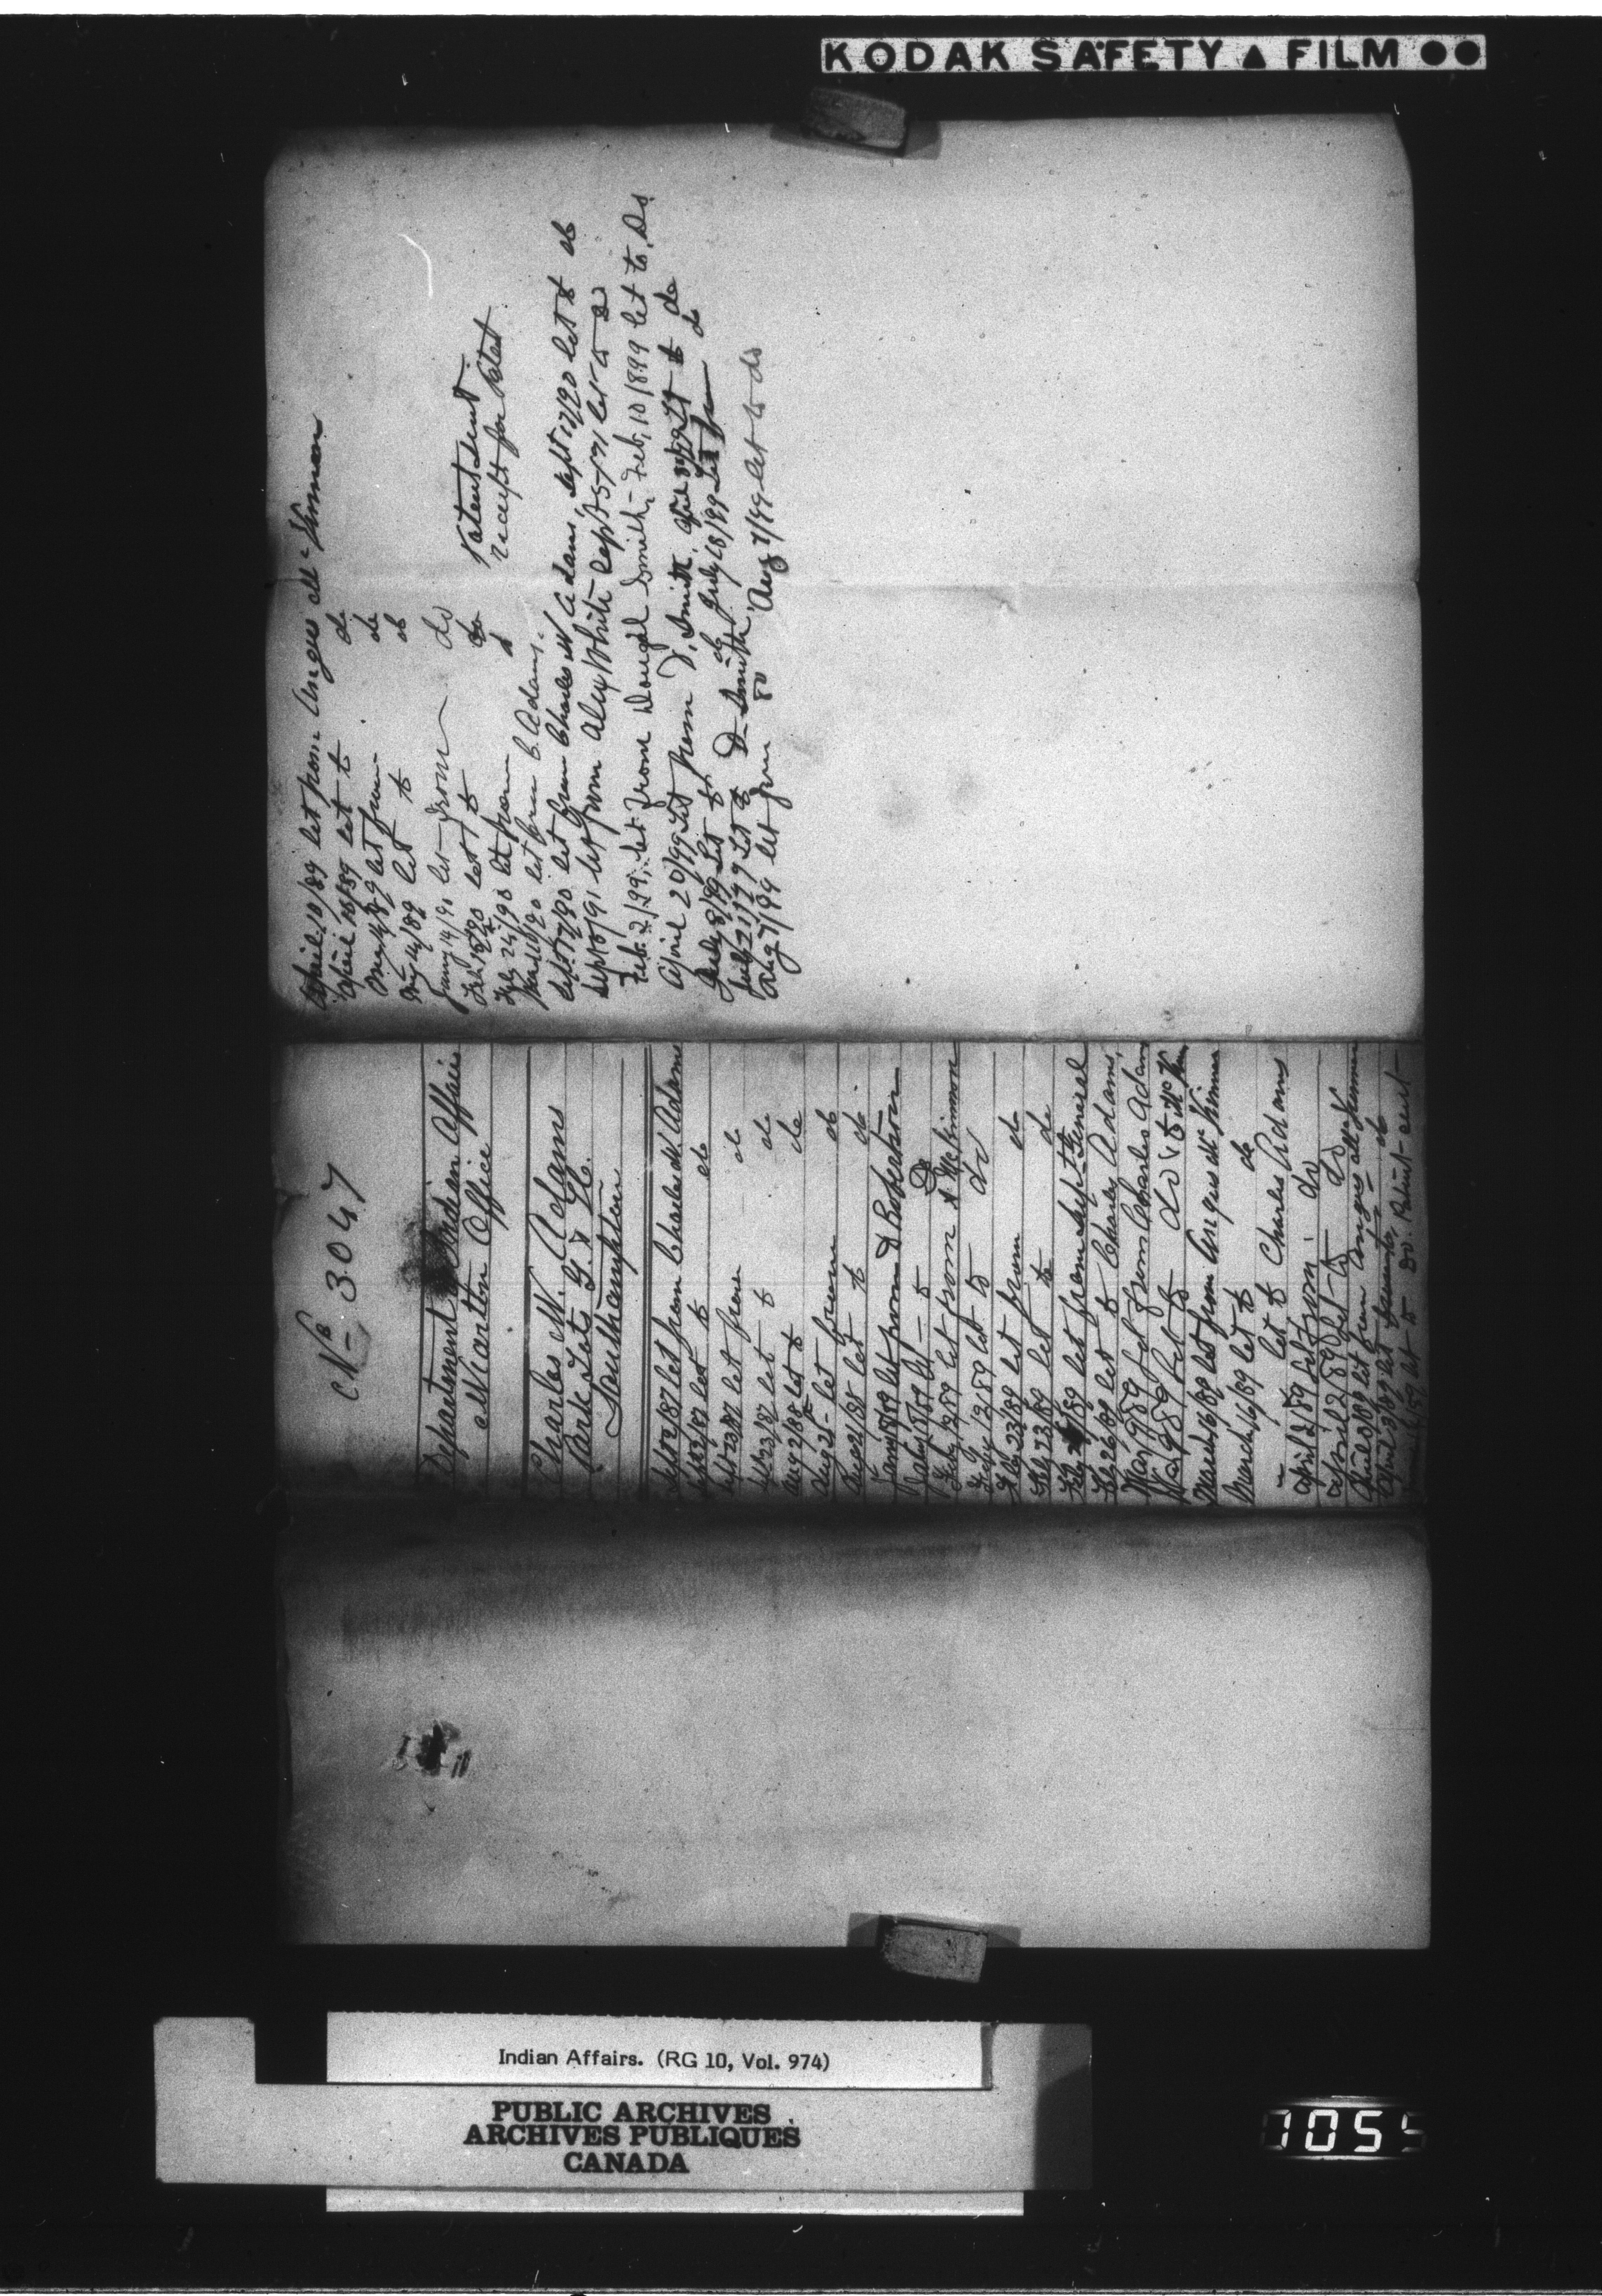 KODAK SAFETY ▲ FILM ●●
No 3047
Department Indian Affairs
Wiarton Office
Charles W. Adams
Park Lots G & H.
Southampton
Sept 02/87 let from Charles W. Adams
let to do
let from do
23/87 let to do
Aug 2/88 let to do
Aug 21 let from do
Aug 21/88 let to do
Jany 18/89 let from D Robertson
Jany 18/89 let to Do
Feby 12/89 let from A McKinnon
Feby 12/89 let to do
Feby 23/89 let from do
Feby 23/89 let to do
let from Supt General
Feb 26/89 let to Charles Adams
Mar 9 89 let from Charles Adams
let to do
March 16/89 let from Angus McKinnon
March 16/89 let to do
let to Charles Adams
April 2/89 let from do
April 2 89 let to do
let from Angus McKinnon
April 3/89 let do
let to do. Patent sent
April 10/89 let from Angus McKinnon
April 10/89 let to do
May 14/89 let from do
May 14/89 let to do
Jany 14/90 let from do
Feb 15/90 let to do
Feby 24/90 let from
Patent sent
receipt for
let from C Adams.
Sept 17/90 let from Charles W Adams, Sept 17/90 let to do
Sept 5/91 let from Alex White Sept 5/91 let to do
Feb. 2/99, let from Dougal Smith, Feb. 10/899 let to Do
April 20/99 Let from D. Smith, April Let to do
July 8/99 Let to do July 18/99 Let from do
July 21/99 Let to D Smith
Aug 7/99 let from do Aug 7/99 let to do
Indian Affairs. (RG 10, Vol. 974)
PUBLIC ARCHIVES
ARCHIVES PUBLIQUES
CANADA
1055